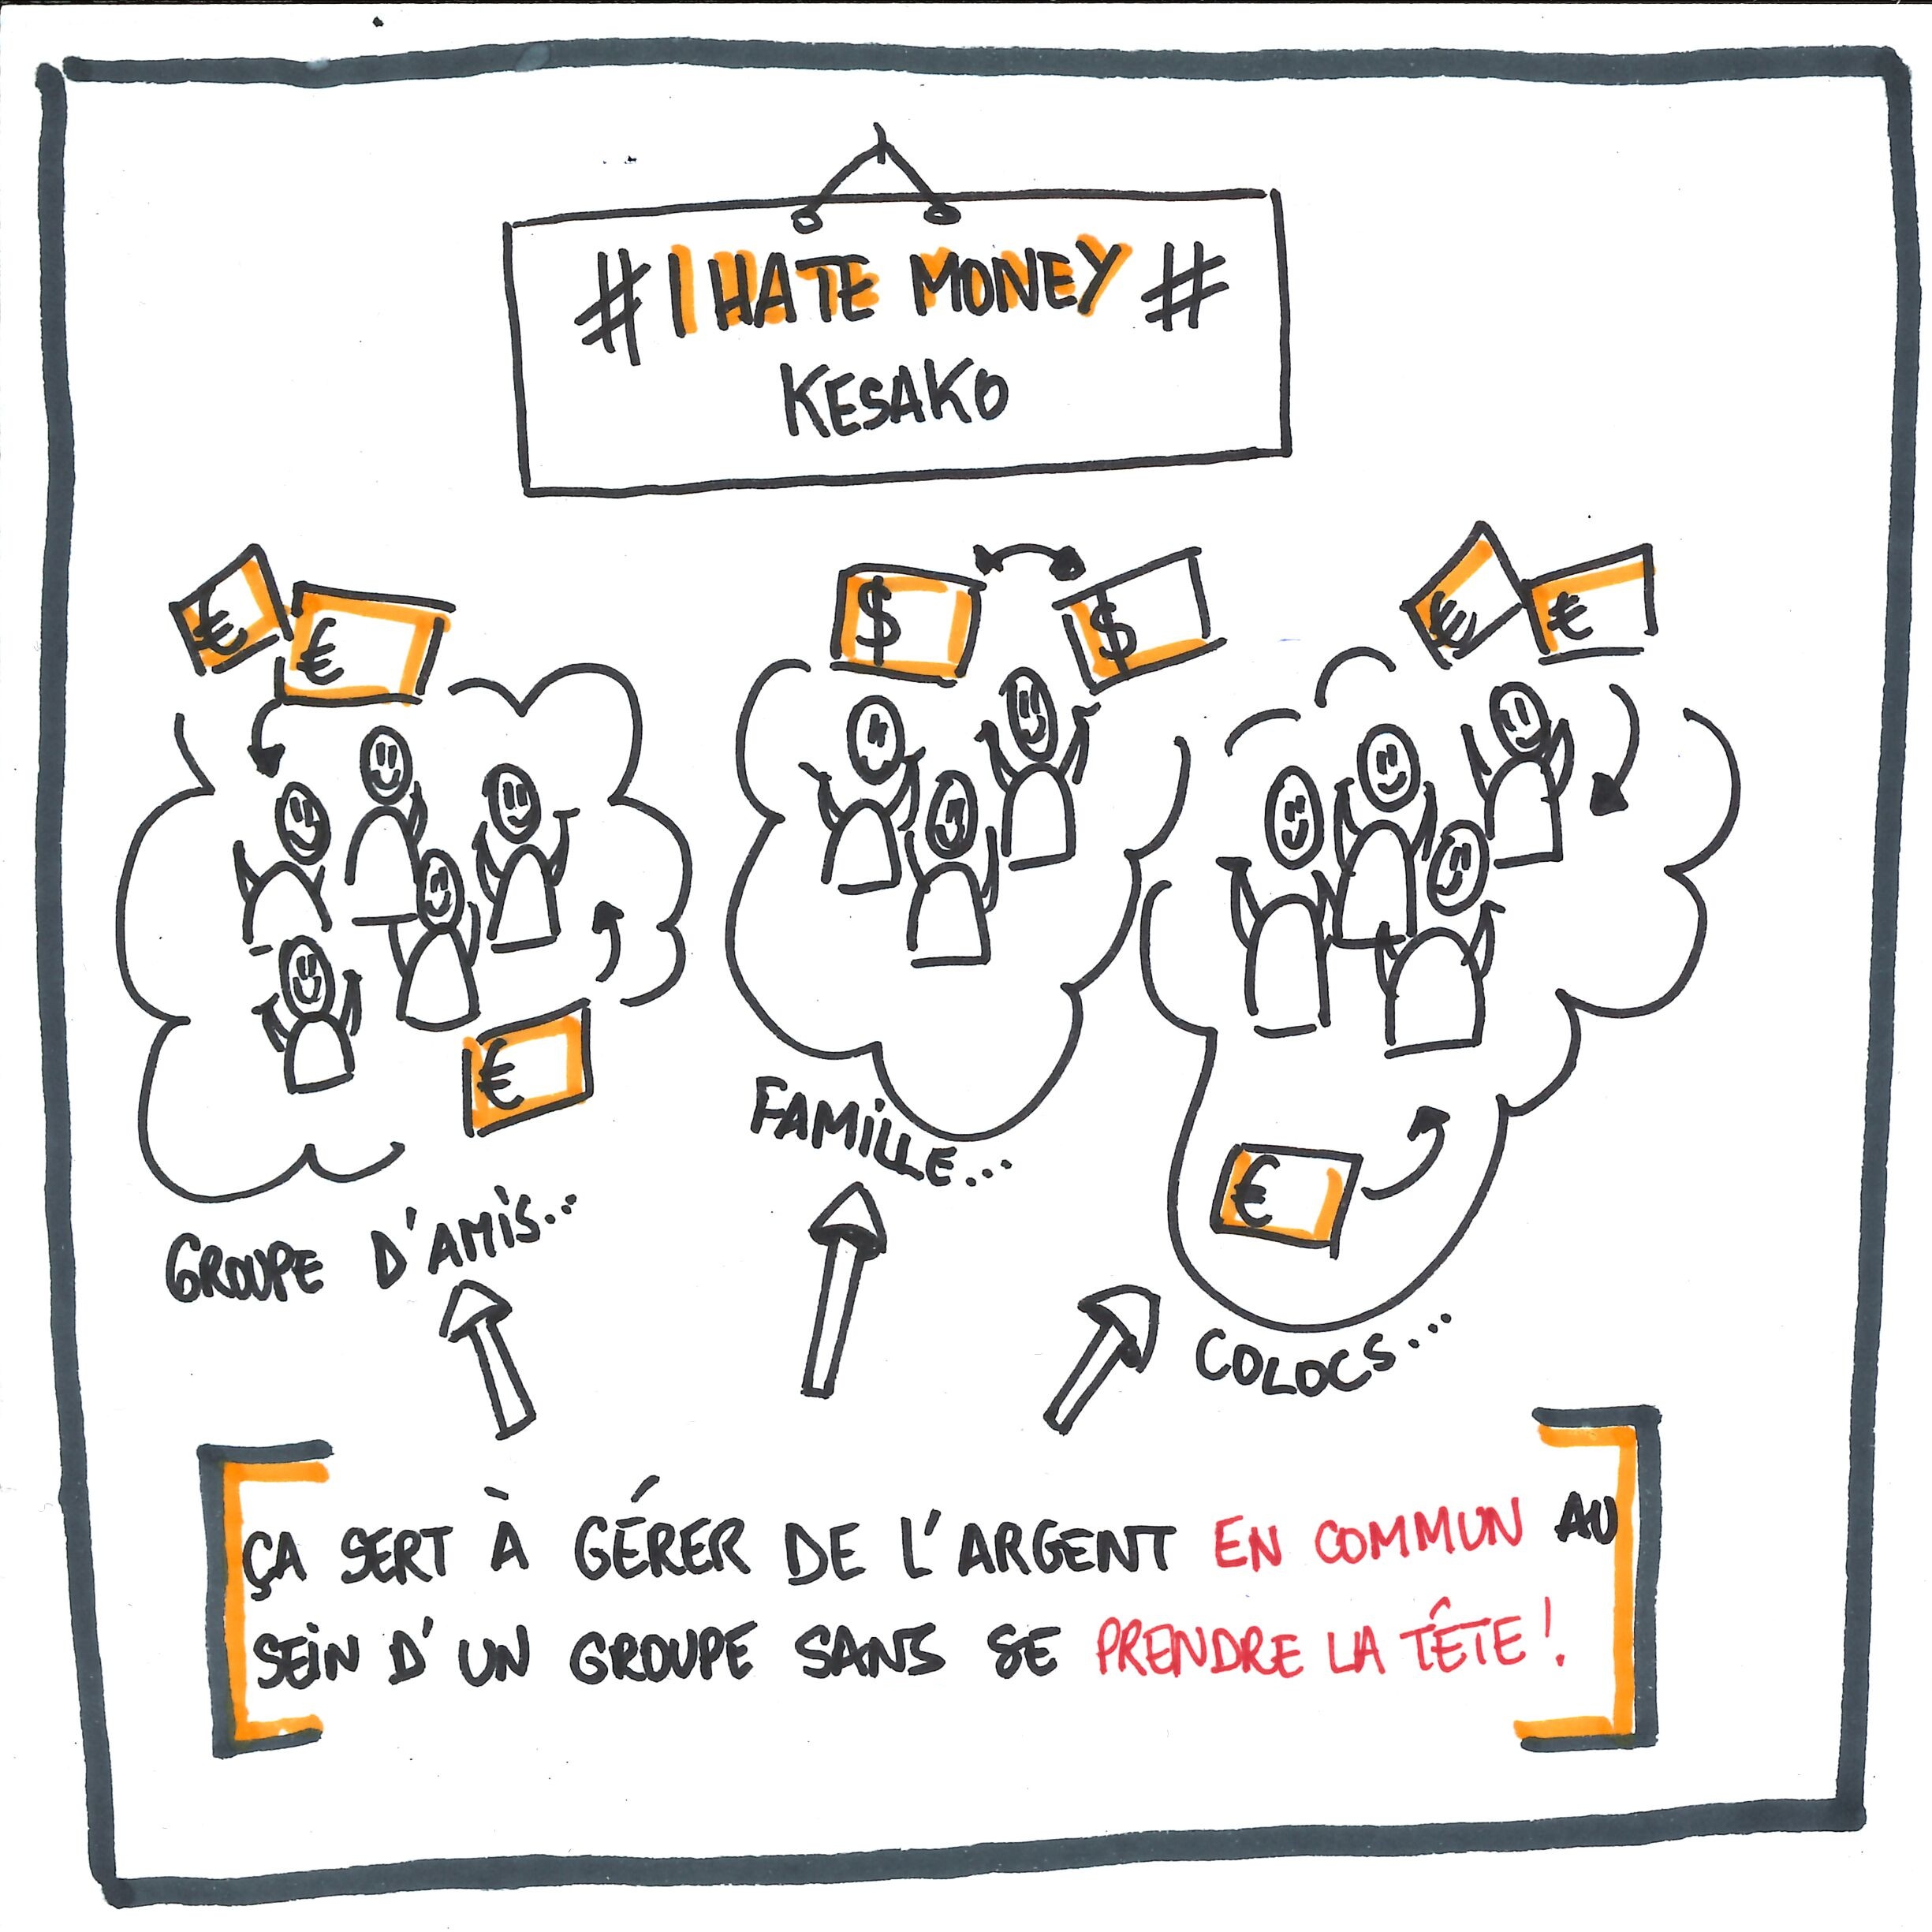 # I HATE MONEY #
KESAKO
€
€
$
$
€
€
€
€
FAMILLE...
GROUPE D'AMIS...
COLOCS....
ÇA SERT À GÉRER DE L'ARGENT EN COMMUN AU
SEIN D'UN GROUPE SANS SE PRENDRE LA TÊTE !